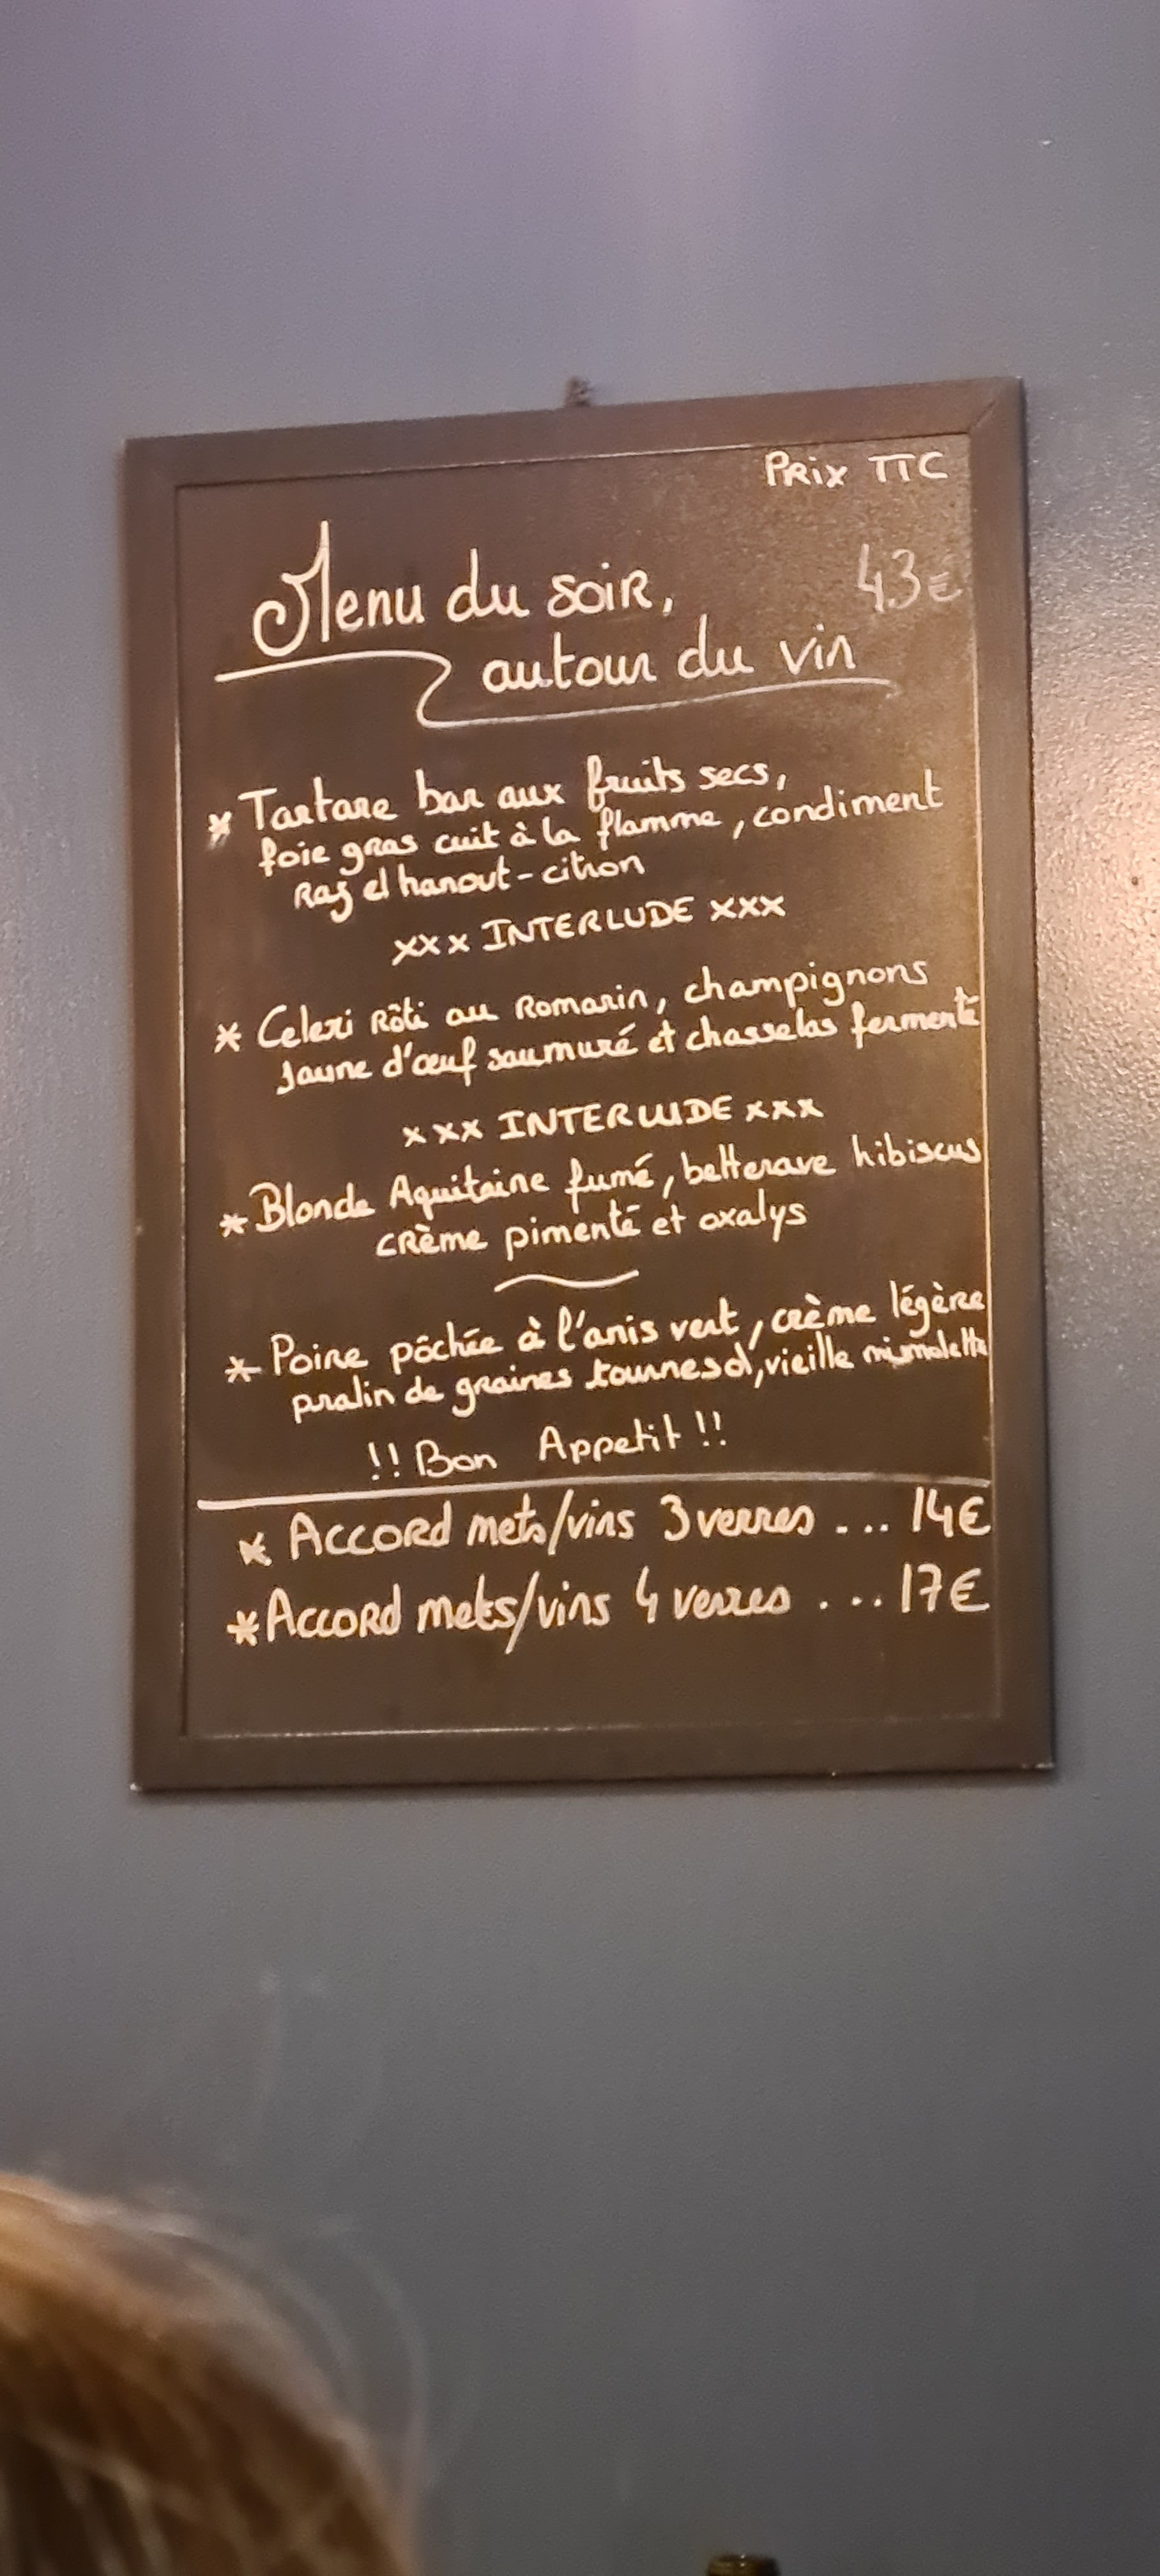 Prix TTC
Menu du soir, 43€
autour du vin
* Tartare bar aux fruits secs,
foie gras cuit à la flamme, condiment
Ras el hanout - citron
xxx INTERLUDE xxx
* Celeri Rôti au Romarin, champignons
Jaune d'œuf saumuré et chasselas fermenté
xxx INTERLUDE xxx
* Blonde Aquitaine fumé, betterave hibiscus
crème pimenté et oxalys
* Poire pôchée à l'anis vert, crème légère
pralin de graines tournesol, vieille mimolette
!! Bon Appetit !!
* Accord mets/vins 3 verres ... 14€
* Accord mets/vins 4 verres .... 17€